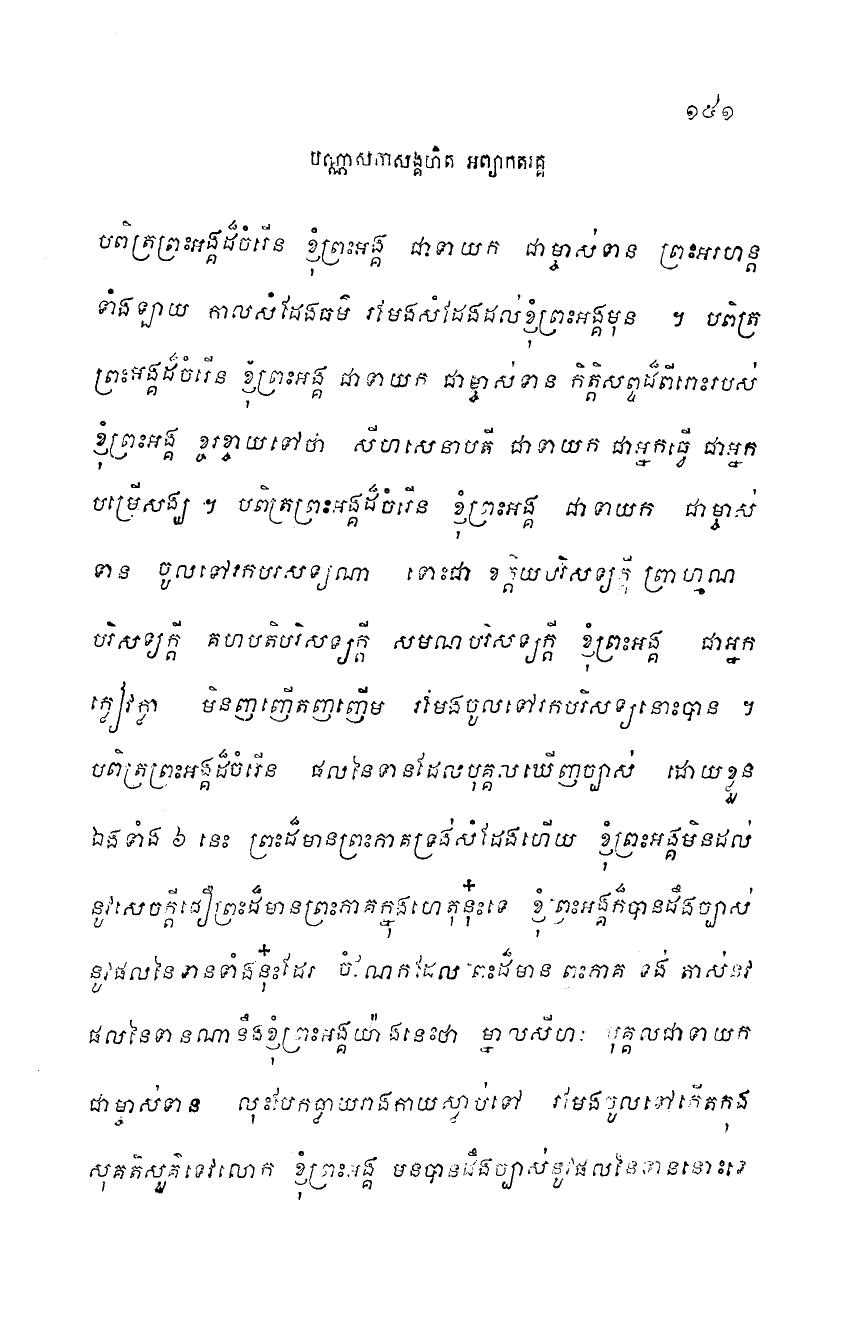 ១៥១
បណ្ណាសកាសង្គហិត អព្យាកតវគ្គ
បពិត្រព្រះអង្គដ៏ចំរើន ខ្ញុំព្រះអង្គ ជាទាយក ជាម្ចាស់ទាន ព្រះអរហន្ត
ទាំងឡាយ កាលសំដែងធម៌ រមែងសំដែងដល់ខ្ញុំព្រះអង្គមុន ។ បពិត្រ
ព្រះអង្គដ៏ចំរើន ខ្ញុំព្រះអង្គ ជាទាយក ជាម្ចាស់ទាន កិត្តិសព្ទដ៏ពីរោះរបស់
ខ្ញុំព្រះអង្គ ខ្ចរខ្ចាយទៅថា សីហសេនាបតី ជាទាយក ជាអ្នកធ្វើ ជាអ្នក
បម្រើសង្ឃ ។ បពិត្រព្រះអង្គដ៏ចំរើន ខ្ញុំព្រះអង្គ ជាទាយក ជាម្ចាស់
ទាន ចូលទៅរកបរិសទ្យណា ទោះជា ខត្តិយបរិសទ្យក្តី ព្រាហ្មណ
បរិសទ្យក្តី គហបតិបរិសទ្យក្តី សមណបរិសទ្យក្តី ខ្ញុំព្រះអង្គ ជាអ្នក
ក្លៀវក្លា មិនញញើតញញើម រមែងចូលទៅរកបរិសទ្យនោះបាន ។
បពិត្រព្រះអង្គដ៏ចំរើន ផលនៃទានដែលបុគ្គលឃើញច្បាស់ ដោយខ្លួន
ឯងទាំង ៦ នេះ ព្រះដ៏មានព្រះភាគទ្រង់សំដែងហើយ ខ្ញុំព្រះអង្គមិនដល់
នូវសេចក្តីជឿព្រះដ៏មានព្រះភាគក្នុងហេតុនុ៎ះទេ ខ្ញុំព្រះអង្គក៏បានដឹងច្បាស់
នូវផលនៃទានទាំងនុ៎ះដែរ ចំណែកដែលព្រះដ៏មានព្រះភាគ ទ្រង់ត្រាស់នូវ
ផលនៃទានណានឹងខ្ញុំព្រះអង្គយ៉ាងនេះថា ម្នាលសីហៈ បុគ្គលជាទាយក
ជាម្ចាស់ទាន លុះបែកធ្លាយរាងកាយស្លាប់ទៅ រមែងចូលទៅកើតក្នុង
សុគតិសួគ៌ទេវលោក ខ្ញុំព្រះអង្គ មិនបានដឹងច្បាស់នូវផលនៃទាននោះទេ